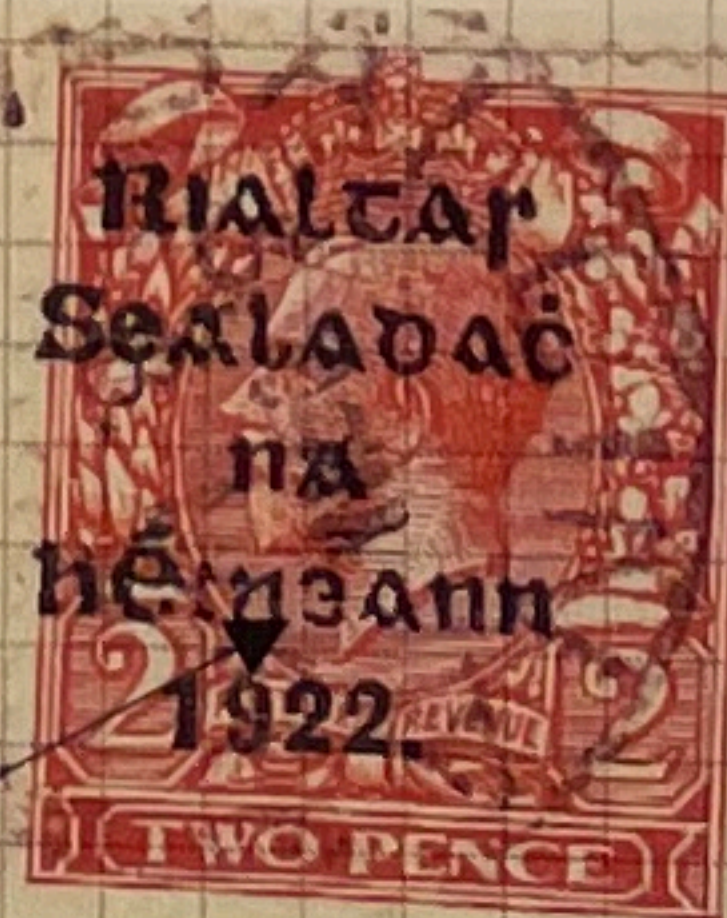 Rialtas
Sealadaċ
na
hÉireann
1922.
2 REVENUE 2
TWO PENCE